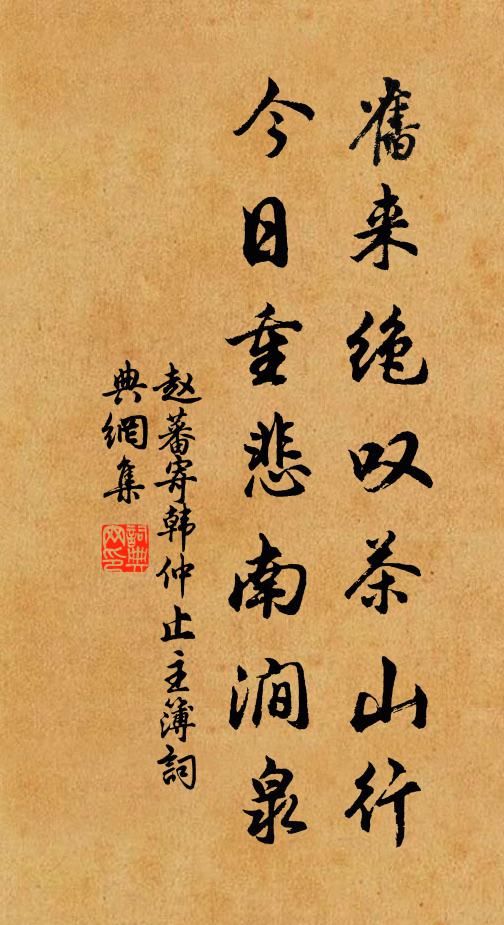 舊来绝叹茶山行
今日重悲南澗泉
赵蕃寄韩仲止主簿詞
典網集
詞典网印